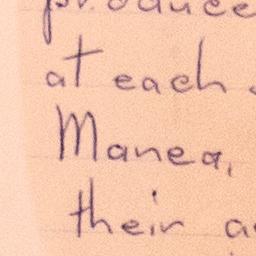 produce
at each
Manea,
their a